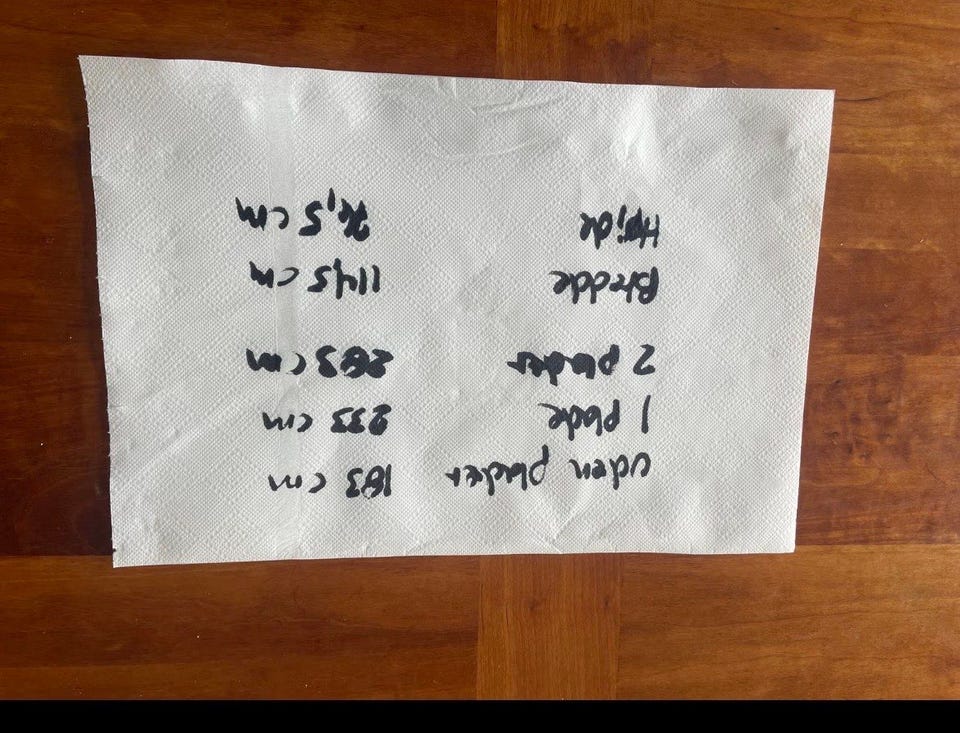 uden plader 183 cm
1 plade 233 cm
2 plader 283 cm
Bredde 114,5 cm
Højde 76,5 cm